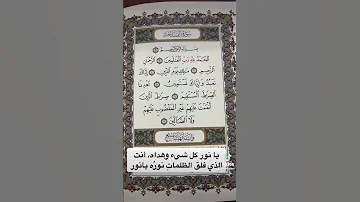 بِسْمِ اللَّهِ الرَّحْمَٰنِ الرَّحِيمِ
الْحَمْدُ لِلَّهِ رَبِّ الْعَالَمِينَ الرَّحْمَٰنِ
الرَّحِيمِ مَالِكِ يَوْمِ الدِّينِ إِيَّاكَ
نَعْبُدُ وَإِيَّاكَ نَسْتَعِينُ اهْدِنَا
الصِّرَاطَ الْمُسْتَقِيمَ صِرَاطَ الَّذِينَ
أَنْعَمْتَ عَلَيْهِمْ غَيْرِ الْمَغْضُوبِ عَلَيْهِمْ
وَلَا الضَّالِّينَ
يا نور كل شيء وهداه، أنت
الذي فلق الظلمات نورُه يانور